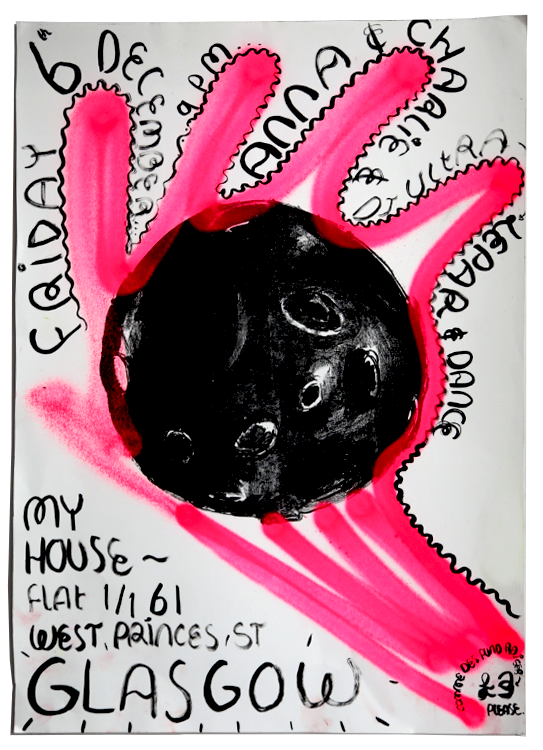 FRIDAY 6th DECEMBER...
9pm
ANNA &
CHARLIE &
DJ ULTRA
LEPAR & DANCE
MY
HOUSE ~
FLAt 1/1 61
WEST. PRINCES. ST
GLASGOW
£3
PLEASE.